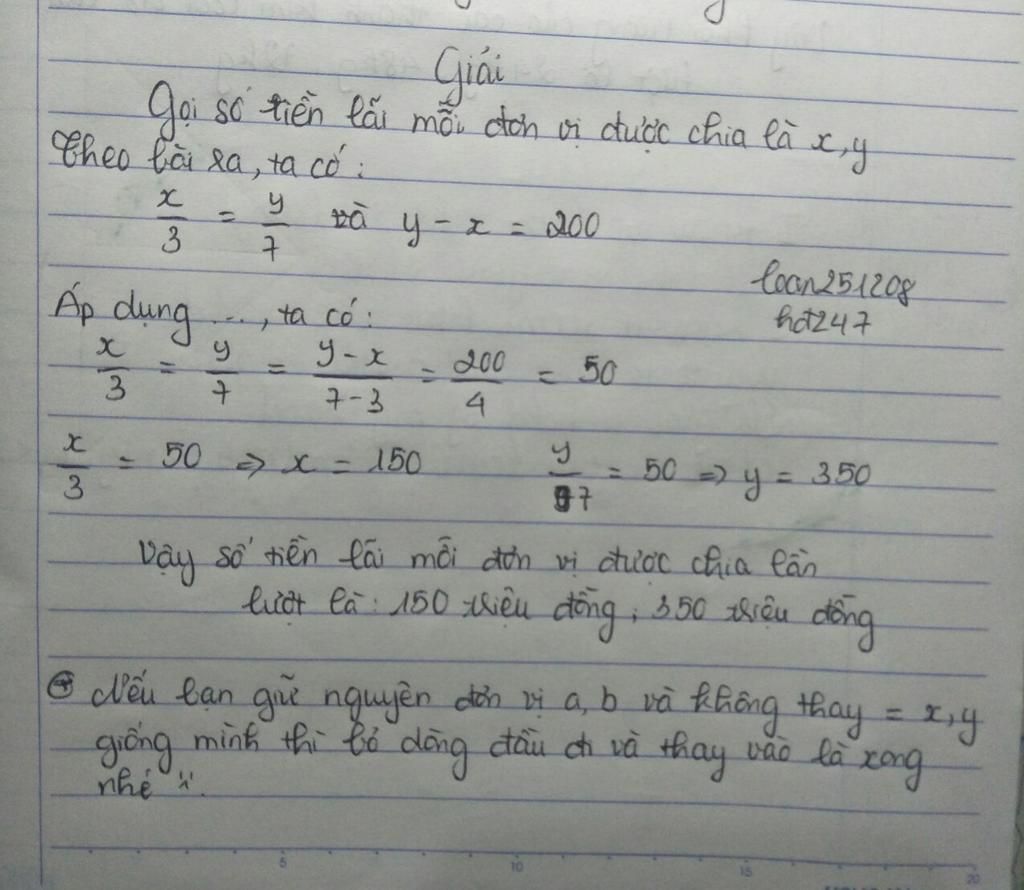 Giải
Gọi số tiền lãi mỗi đơn vị được chia là x, y
Theo bài ra, ta có:
x/3 = y/7 và y - x = 200
loan251208
hdt247
Áp dụng ..., ta có:
x/3 = y/7 = y - x/7 - 3 = 200/4 = 50
x/3 = 50 => x = 150 y/7 = 50 => y = 350
Vậy số tiền lãi mỗi đơn vị được chia lần
lượt là: 150 triệu đồng, 350 triệu đồng
Nếu bạn giữ nguyên đơn vị a, b và không thay = x, y
giống mình thì bỏ dòng đầu đi và thay vào là xong
nhé
5 10 15 20